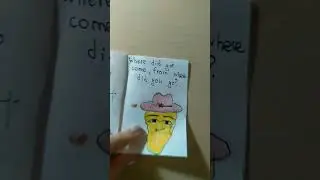 Where did you
come, from where
did you go?